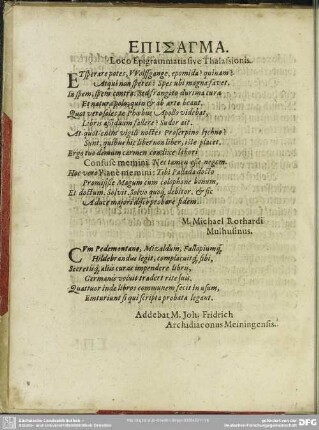 ΕΠΙΣΑΓΜΑ.
Loco Epigrammatis sive Thalassionis.
ET sperare potes, Wolffgange, epomida? quinam?
Atqui non speres? Spes ubi magna favet.
In spem, spem contra. Sed frangito durius cura
Et natura polo, quin & ab arte beant.
Quot vero soles te Phœbus Apollo videbat,
Libris assiduum fallere? Sudor ait.
At quot enim vigili noctes Proserpina lychno?
Sunt, quibus hic liber una liber, iste placet.
Ergo tuo demum carmen
Confuse memini; Nec tamen esse negem.
Hoc vero Plane memini: Tibi Pallada docto
Promisisse Magum cum colophone bonum,
Et doctum. Solvit. Solvo quoq; debitor, & sic
Adhæc majori disco probare fidem.
M. Michael Rothardt
Mulhusinus.
CUm Pedemontano, Mizaldum, Fallopiumq;
Hildebrandus legit, complacuitq; sibi,
Secretisq; aliis curas impendere libris,
Germanis veluti tradert rite suis,
Quattuor inde libros communem fecit in usum,
Emturiunt si qui scripta probata legant.
Addebat M. Joh. Fridrich
Archidiaconus Meiningensis.